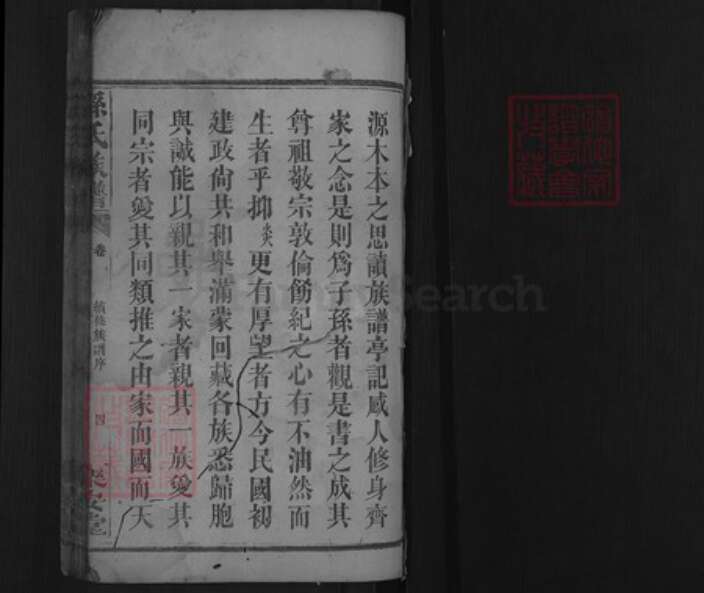 源木本之思讀族譜亭記感人修身齊
家之念是則爲子孫者觀是書之成其
尊祖敬宗敦倫飭紀之心有不油然而
生者乎抑炎更有厚望者方今民國初
建政尙共和舉滿蒙回藏各族悉歸胞
與誠能以親其一家者親其一族愛其
同宗者愛其同類推之由家而國而天
孫氏族譜
卷
續修族譜序
四
樂安堂
Search